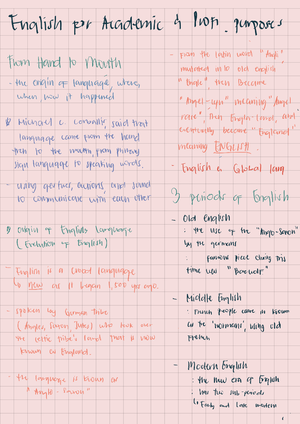 English for Academic & Prof. purposes
From Hand to Mouth
- the origin of language, where,
when how it happened
Michael C. Corballis, said that
language came from the hand
then to the mouth from
sign language to speaking words.
- using gestures, actions, and sound
to communicate with each other
Origin of English Language
(Evolution of English)
- English is a language
new as it began 1,500 yrs ago.
- spoken by German Tribe
(Angles, Saxon, Jutes) who took over
the celtic tribe's land that is now
known as England.
- the language is known as
"Anglo-Saxon"
- from the latin word "Angli"
mutated into old english
"Engle" then become
"Angel-cyn" meaning "Angel
race", then Engla-land, and
eventually become "England"
meaning ENGLISH
- English a Global lang
3 periods of English
- Old English
: the use of the "Anglo-Saxon"
by the germans
: famous piece during this
time was "Beowulf"
- Middle English
: French people came in known
as the "normans", using old
french
- Modern English
: the new era of English
: has two sub-periods
↳ Early and Late modern